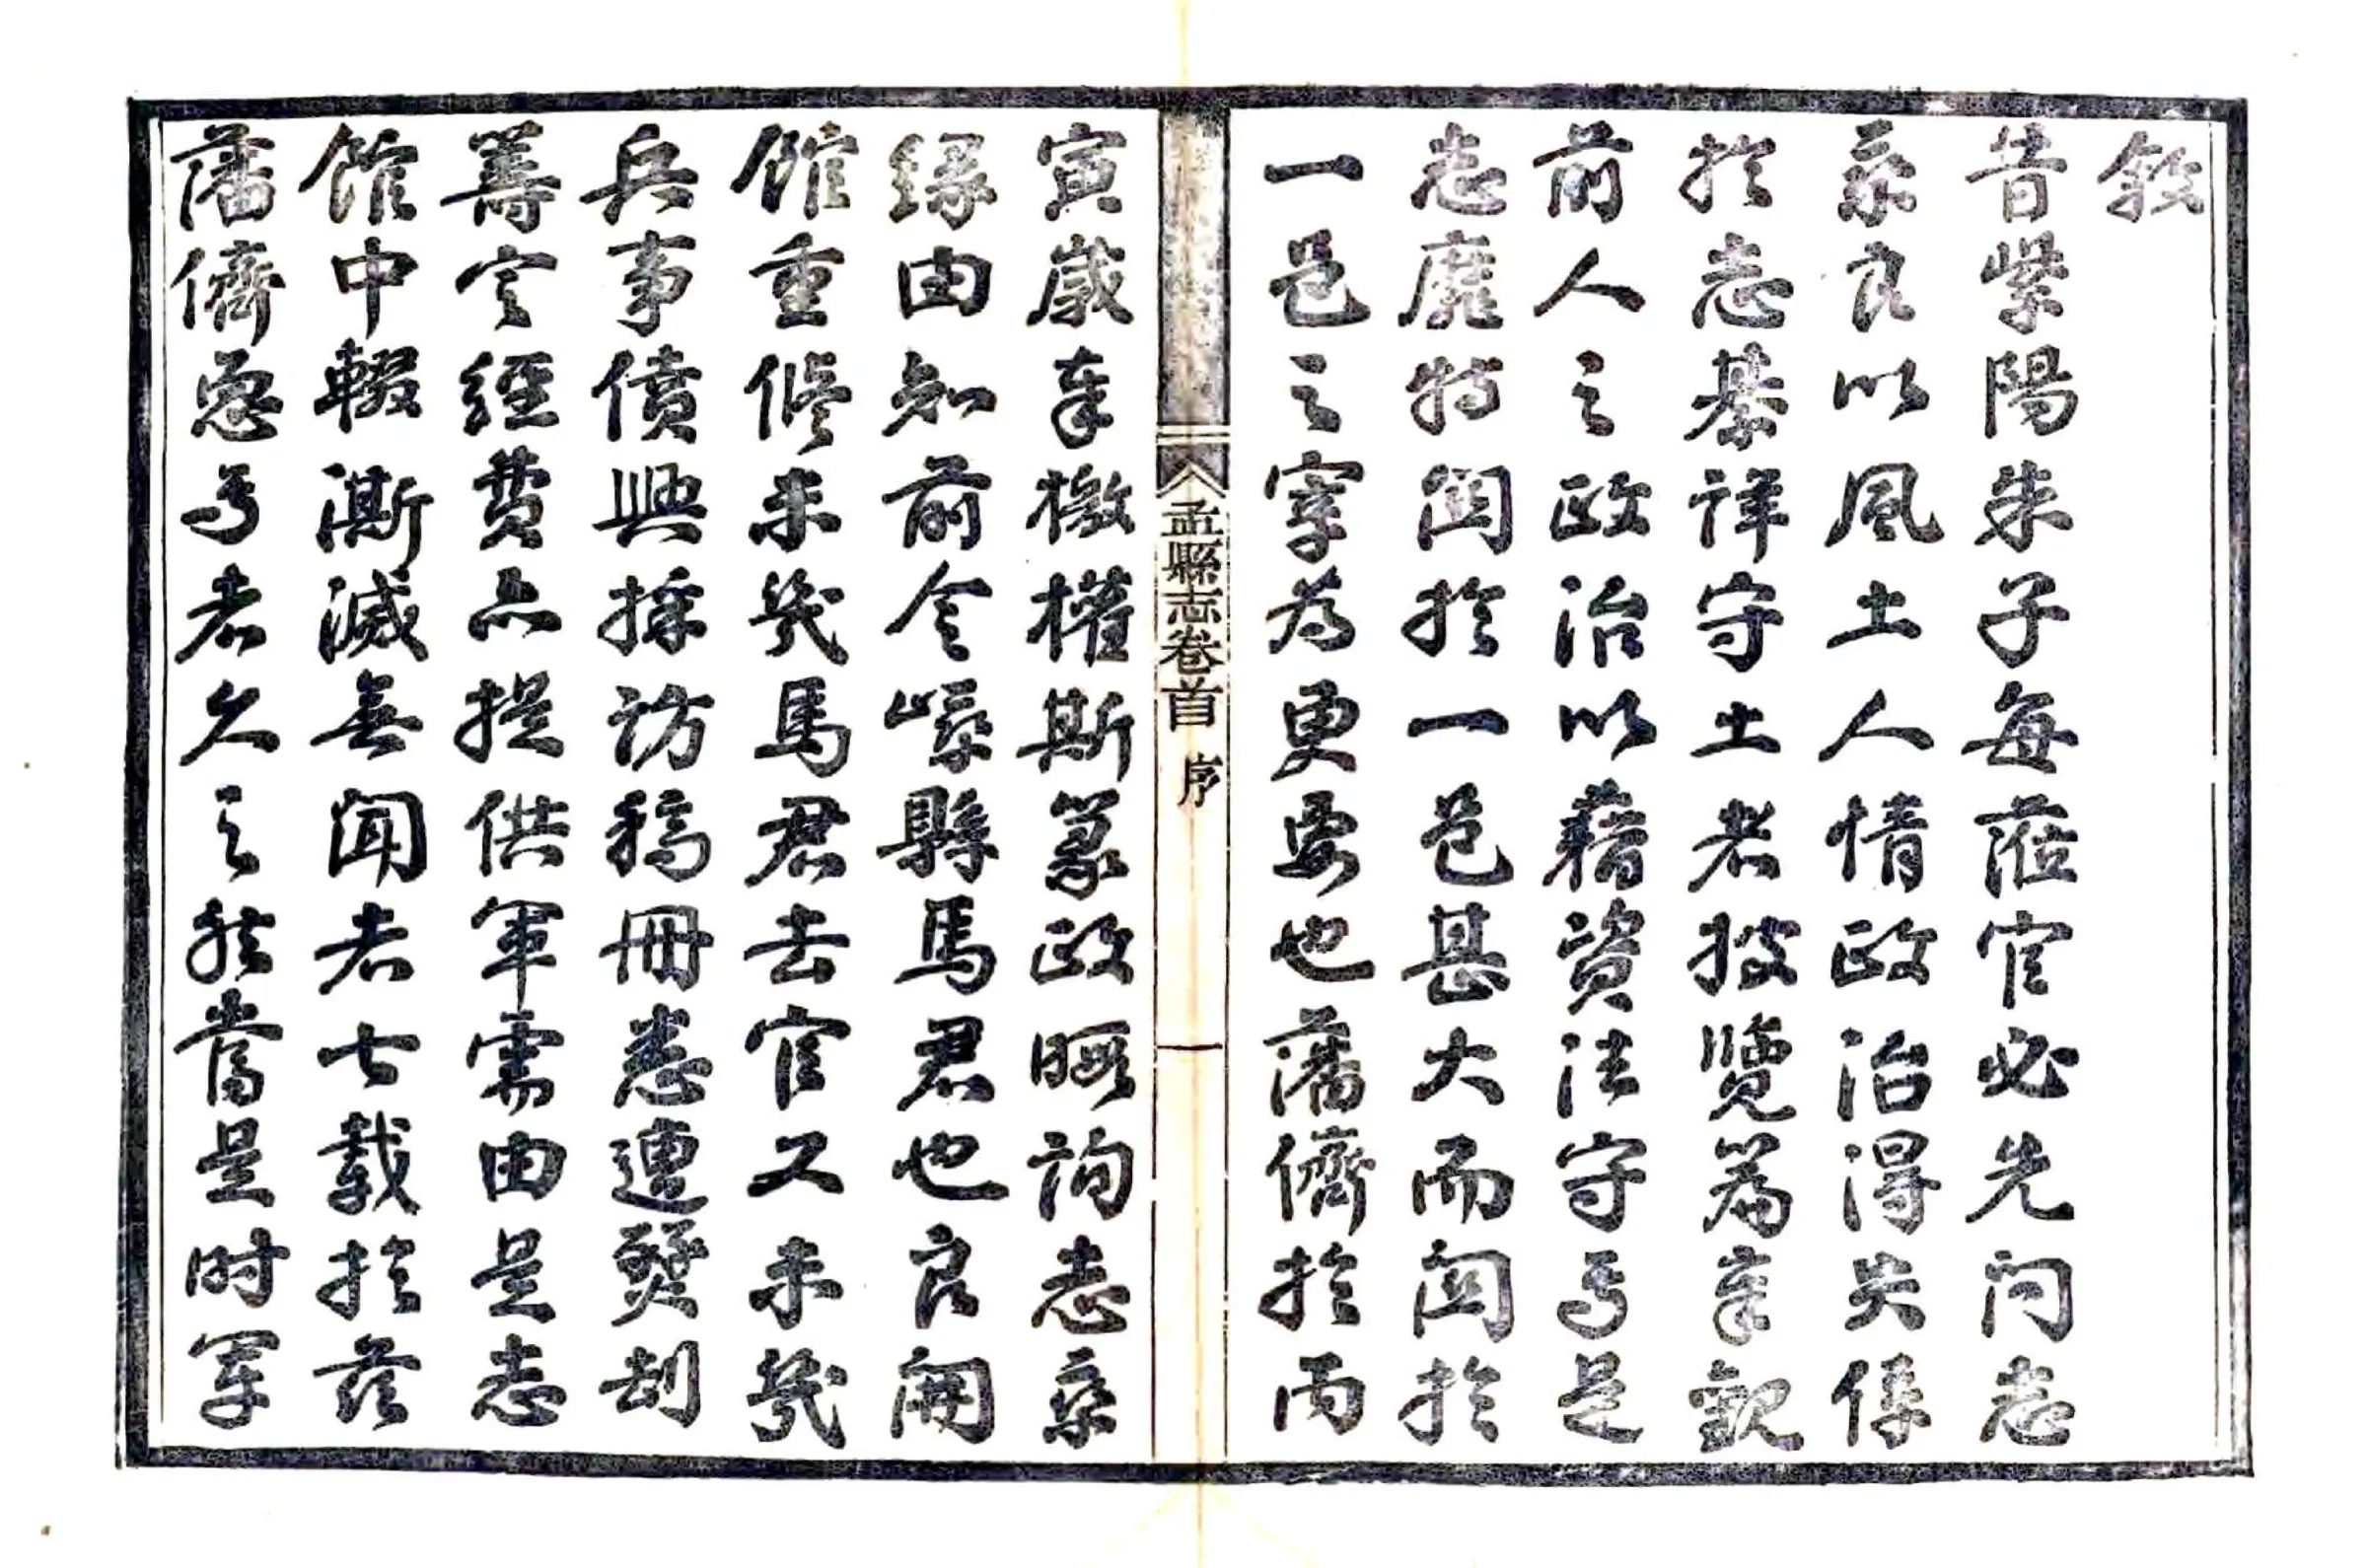 敘
昔紫陽朱子每蒞官必先問志
乘良以風土人情政治得失係
於志綦詳守土者披覽篇章觀
前人之政治以藉資法守焉是
志靡特關於一邑甚大而關於
一邑之宰為更要也藩儕於丙
孟縣志卷首 序 一
寅歲奉檄權斯篆政暇詢志乘
緣由知前令嵊縣馬君也良開
館重修未幾馬君去官又未幾
兵事僨興採訪稿冊悉遭燹刧
籌定經費亦提供軍需由是志
館中輟澌滅無聞者七載於茲
藩儕焉者久之然當是時軍